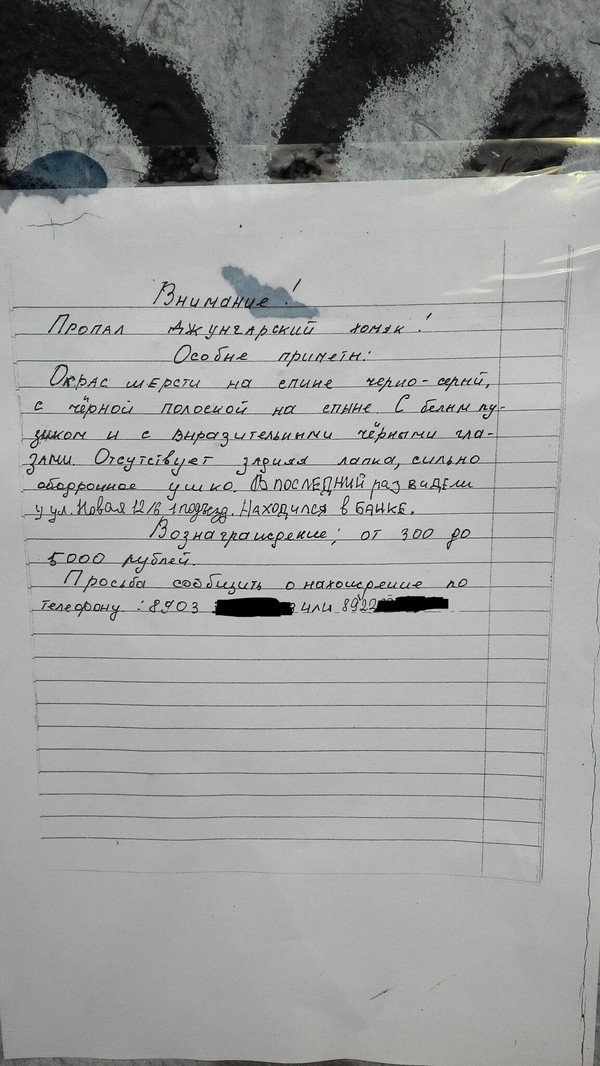 Внимание!
Пропал джунгарский хомяк!
Особые приметы:
Окрас шерсти на спине черно-серый,
с чёрной полоской на спыне. С белым пу-
зиком и с выразительными чёрными гла-
зами. Отсутствует задняя лапка, сильно
ободронное ушко. В последний раз видели
у ул. Новая 12/6 1 подъезд. Находился в банке.
Вознаграждение; от 300 до
5000 рублей.
Просьба сообщить о нахождение по
телефону: 8903 или 892